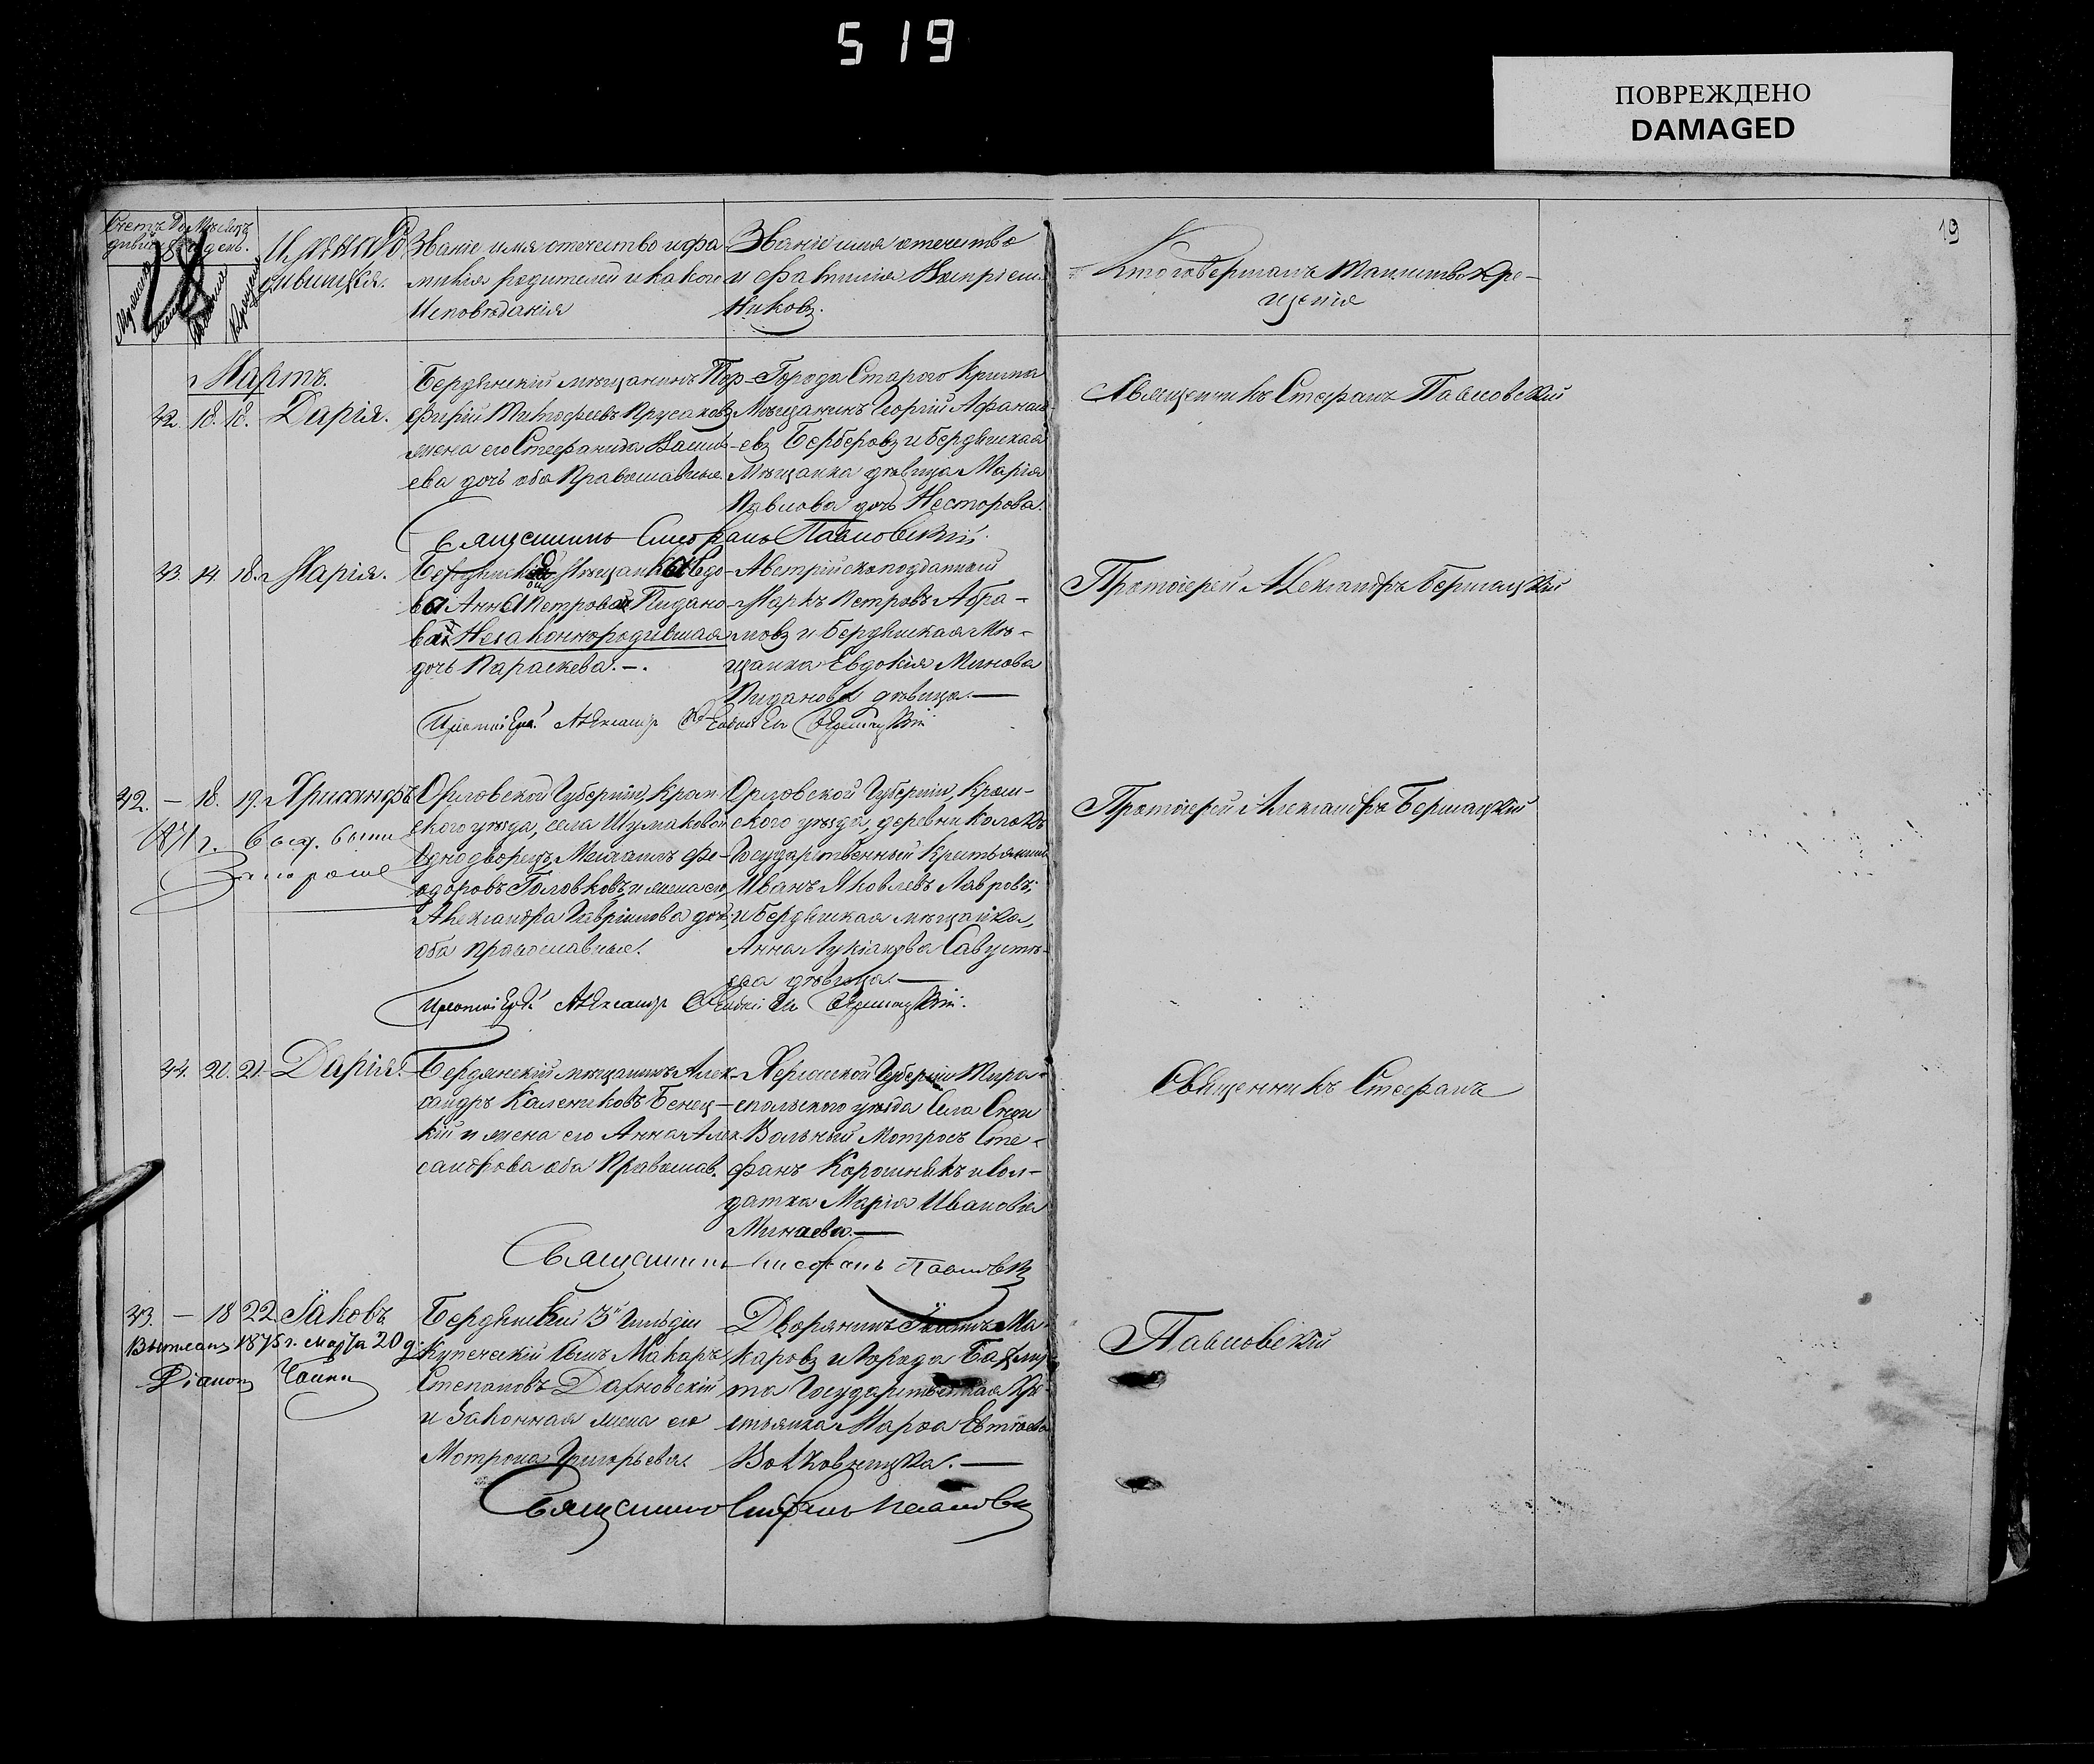 519
ПОВРЕЖДЕНО
DAMAGED
19
Счетъ Ро Мѣсяцъ
дивши и день.
Имена Ро
дившихся.
Званіе имя отечество и фа
милія родителей и какого
Исповѣданія
Званіе имя отечество
и фамилія Воспріем
никовъ.
Кто совершалъ Таинство Кре-
щенія
Мартъ.
42. 18. 18. Дарія.
Бердянскій мѣщанинъ Пор-
фирій Тимофеевъ Прусаковъ
жена его Стефанида Василь
ева дочь оба Православные.
Города Старого Крыма
Мѣщанинъ Георгій Афанась
евъ Берберовъ и бердянская
Мѣщанка дѣвица Марія
Павлова дочь Несторова.
Священникъ Стефанъ Павловскій
Священникъ Стефанъ Павловскій.
43. 14. 18. Марія.
Бердянская Мѣщанка Вдо-
ва Анна Петрова Пидано-
ва Незаконнородившая
дочь Параскева.
Австрійскоподданный
Маркъ Петровъ Абра-
мовъ и бердянская Мѣ-
щанка Евдокія Минова
Пиданова дѣвица.
Протоіерей Александръ
Протоіерей Александръ
42. — 18. 19. Хрисанфъ
1871 г.
Орловской Губерніи, Кром
ского уѣзда, села Шумаковой
Однодворецъ Михаилъ Фе-
одоровъ Головковъ и жена его,
Александра Гавріилова дочь,
оба православные.
Орловской Губерніи, Кром-
ского уѣзда, деревни Колокъ
Государственный Крестьянинъ
Иванъ Яковлевъ Лавровъ;
и бердянская мѣщанка,
Анна Лукіанова Савусть-
ева дѣвица.
Протоіерей Александръ
Протоіерей Александръ
44. 21. 21. Дарія.
Бердянскій мѣщанинъ Алек
сандръ Калениковъ Бенец-
кій и жена его Анна Алек
сандрова оба Православ.
Херсонской Губерніи Тира-
спольского уѣзда Села
Вольный Матросъ Сте-
фанъ Корошникъ и сол-
датка Марія Иванова
Минаева.
Священникъ Стефанъ
Священникъ Стефанъ
43. — 18 22. Іаковъ
1875 г. марта 20 д.
Бердянскій 3й Гильдіи
Купеческій Сынъ Макаръ
Степановъ Дахновскій
и Законная жена его
Мотрона Григорьева.
Дворянинъ Ма
каровъ и Города Бахму
та Государственная Кре
стьянка Марѳа
Волковницка.
Павловскій
Священникъ Стефанъ